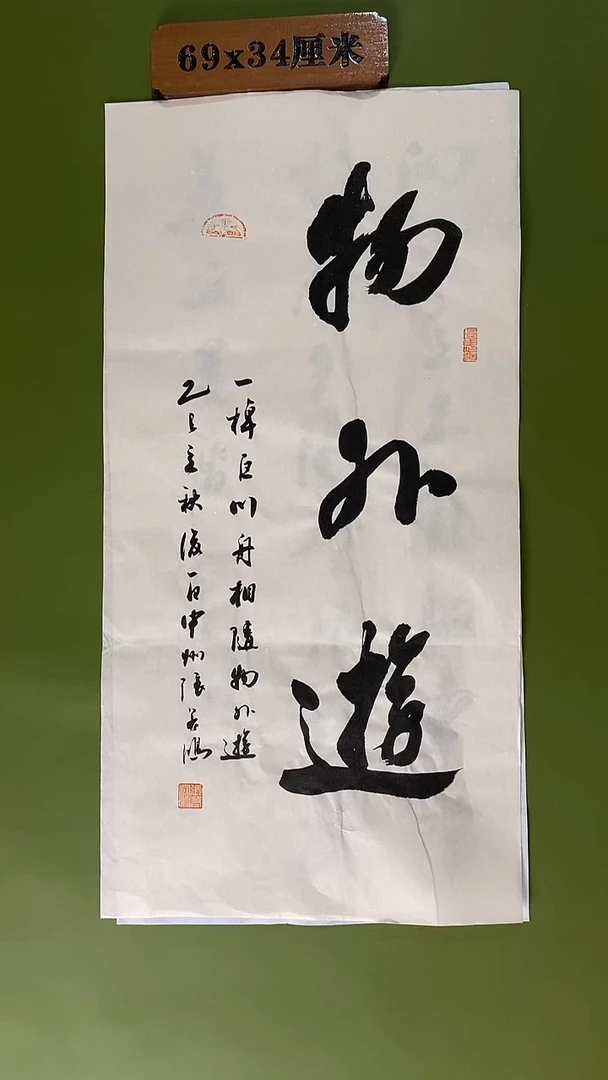 69x34厘米
物外遊
一棹巨川舟相随物外遊
乙巳立秋後一日中州張若鴻